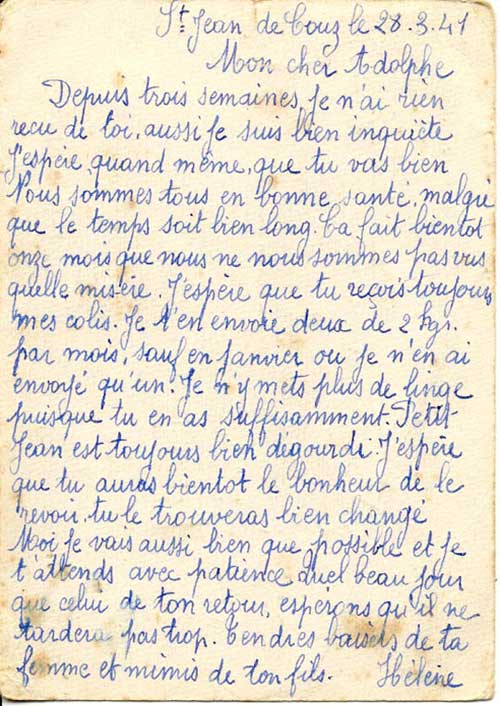 St Jean de Couz le 28.3.41
Mon cher Adolphe
Depuis trois semaines, je n'ai rien
recu de toi, aussi je suis bien inquiète
J'espère, quand même, que tu vas bien
Nous sommes tous en bonne santé, malgré
que le temps soit bien long. Ca fait bientot
onze mois que nous ne nous sommes pas vus
quelle misère. J'espère que tu reçois toujours
mes colis. Je t'en envoie deux de 2 kgs.
par mois, sauf en janvier ou je n'en ai
envoyé qu'un. Je n'y mets plus de linge
puisque tu en as suffisamment. Petit
Jean est toujours bien dégourdi. J'espère
que tu auras bientot le bonheur de le
revoir, tu le trouveras bien changé
Moi je vais aussi bien que possible et je
t'attends avec patience quel beau jour
que celui de ton retour, espérons qu'il ne
tardera pas trop. Tendres baisers de ta
femme et mimis de ton fils. Hélène